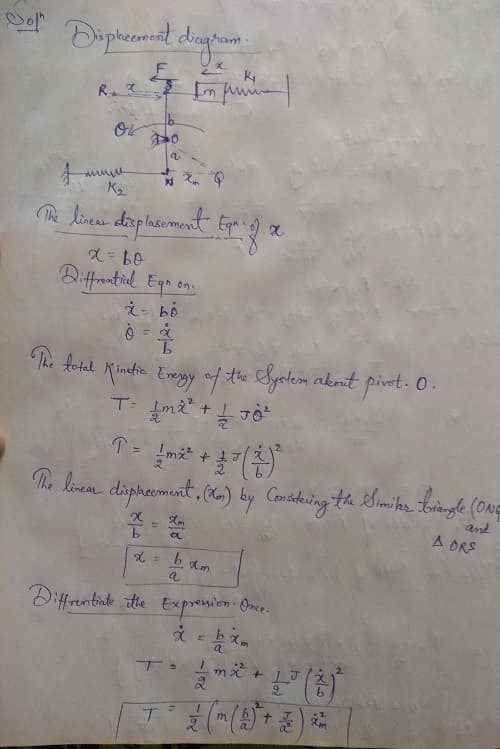 Solⁿ
Displacement diagram.
F x K₁
R x S m
b
θ O
a
K₂ N xₘ Q
The linear displasement Eqⁿ. of x
x = bθ
Diffrential Eqn on.
ẋ = bθ̇
θ̇ = ẋ/b
The total Kinetic Energy of the System about pivot. O.
T = 1/2 mẋ² + 1/2 Jθ̇²
T = 1/2 mẋ² + 1/2 J(ẋ/b)²
The linear displacement, (xₘ) by Considering the Similar triangle (ONQ
and
Δ ORS
x/b = xₘ/a
x = b/a xₘ
Diffrentiate the Expression Once.
ẋ = b/a ẋₘ
T = 1/2 mẋ² + 1/2 J(ẋ/b)²
T = 1/2 (m(b/a)² + J/a²) ẋₘ²